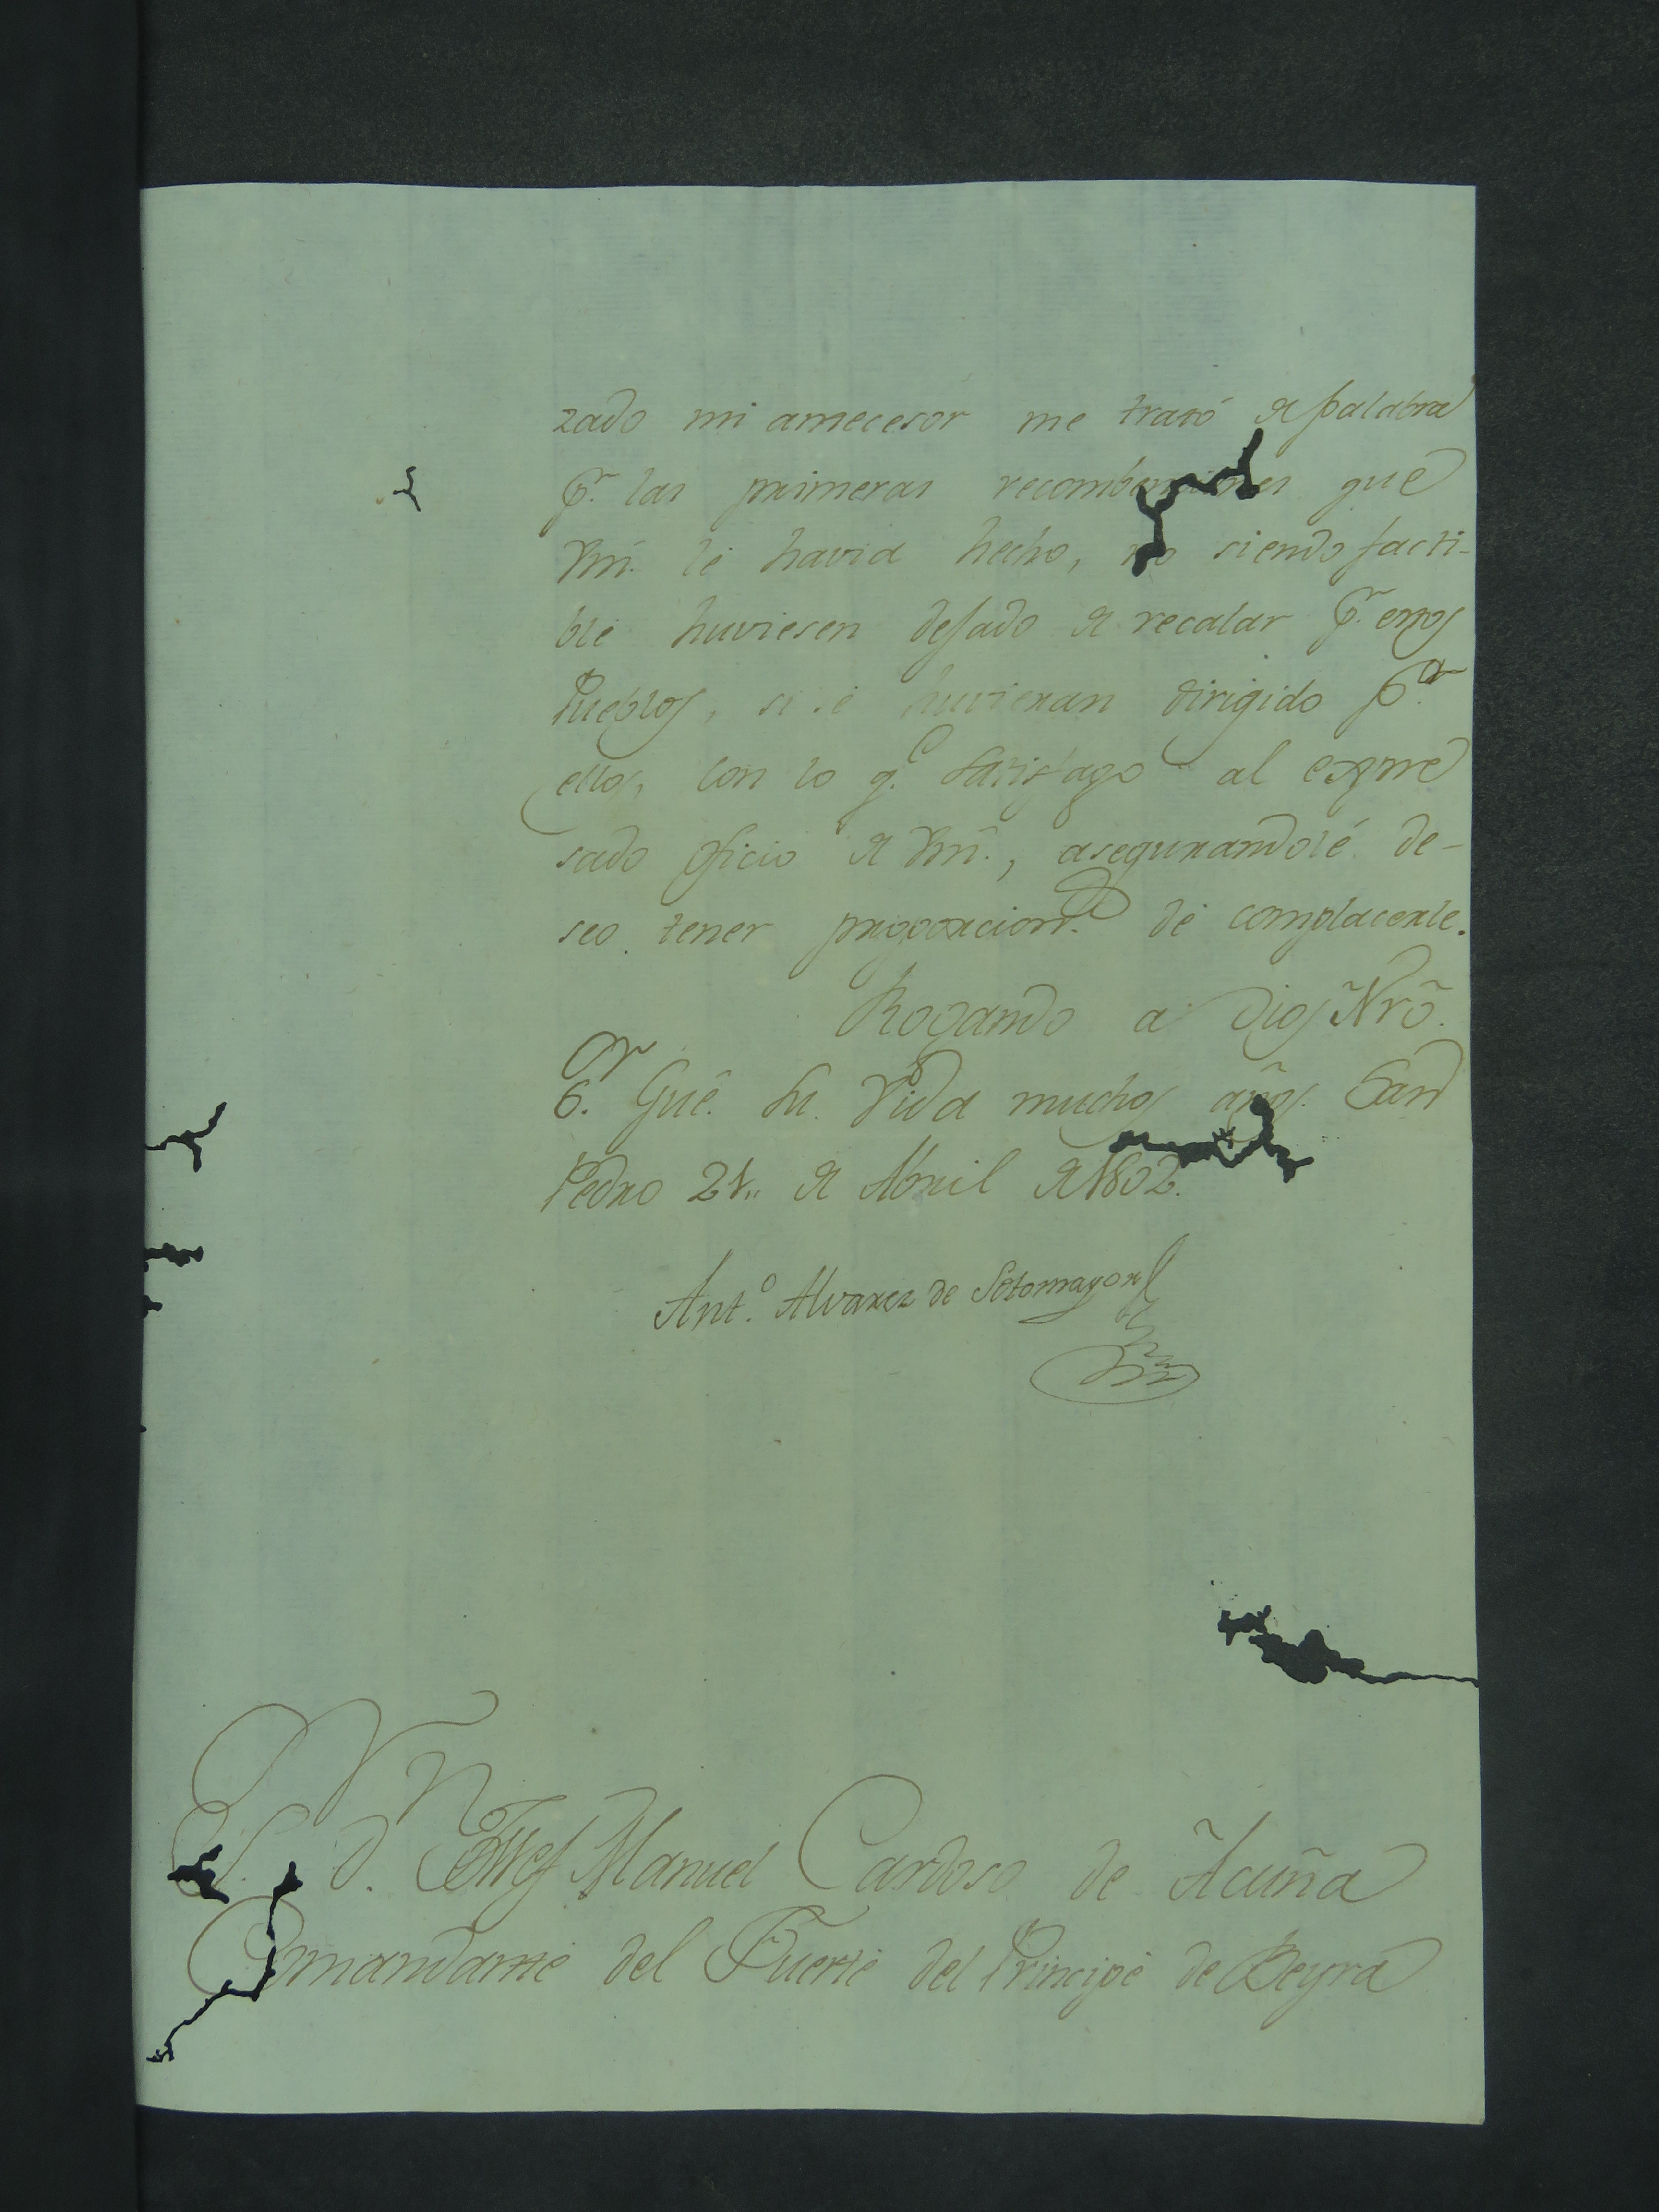 zado mi antecesor me trató de palabra
pr. las primeras recombenciones que
Vm. le havia hecho, no siendo facti-
ble huviesen dejado de recalar pr. essos
Pueblos, si se huvieran dirigido pr.
ellos, con lo qe. satisfago al expre
sado oficio de Vm., asegurandole de-
seo tener proporcion de complacerle.
Rogando a Dios Nro.
Sr. Gue. su Vida muchos años. San
Pedro 21,, de Abril de 1802.
Anto. Alvarez de Sotomayor
Sr. Dn. Manuel Cardoso de Acuña
Comandante del Fuerte del Principe de Beyra